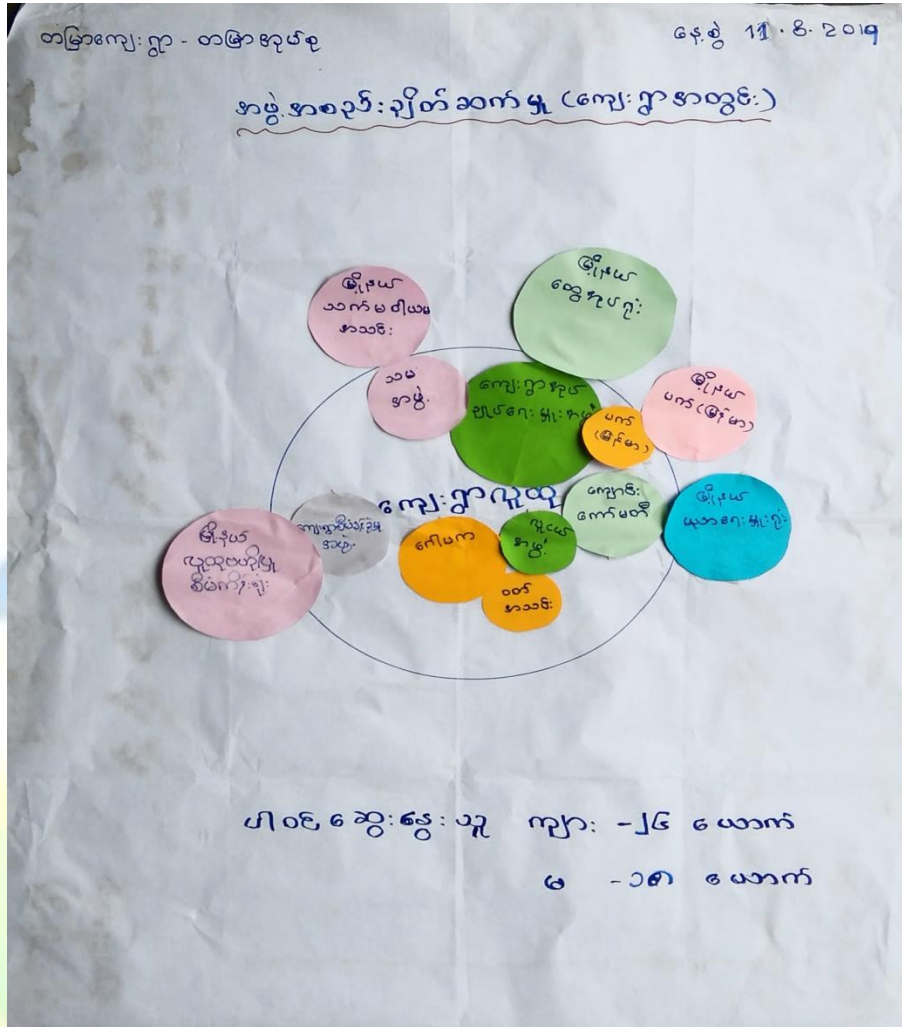 တမြာကျေးရွာ - တမြာအုပ်စု
နေ့စွဲ 11.8.2019
အဖွဲ့အစည်းချိတ်ဆက်မှု (ကျေးရွာအတွင်း)
မြို့နယ်
သက်မဝါယမ
အသင်း
မြို့နယ်
ထွေအုပ်ရုံး
သမ
အဖွဲ့
ကျေးရွာအုပ်
ချုပ်ရေးမှူးအဖွဲ့
ပက်
(မြန်မာ)
မြို့နယ်
ပက် (မြန်မာ)
ကျေးရွာလူထု
ကျောင်း
ကော်မတီ
မြို့နယ်
ပညာရေးမှူးရုံး
မြို့နယ်
လူထုဗဟိုပြု
စီမံကိန်းရုံး
အဖွဲ့
ဂေါပက
လူငယ်
အဖွဲ့
ဝတ်
အသင်း
ပါဝင်ဆွေးနွေးသူ ကျား -၂၆ ယောက်
မ -၁၈ ယောက်